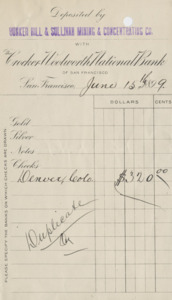 Deposited by
BUNKER HILL & SULLIVAN MINING & CONCENTRATING CO.
WITH
Crocker Woolworth National Bank
OF SAN FRANCISCO
San Francisco, June 15th 1899.
DOLLARS CENTS
Gold
Silver
Notes
Checks
Denver, Colo. 320 00
Duplicate
PLEASE SPECIFY THE BANKS ON WHICH CHECKS ARE DRAWN